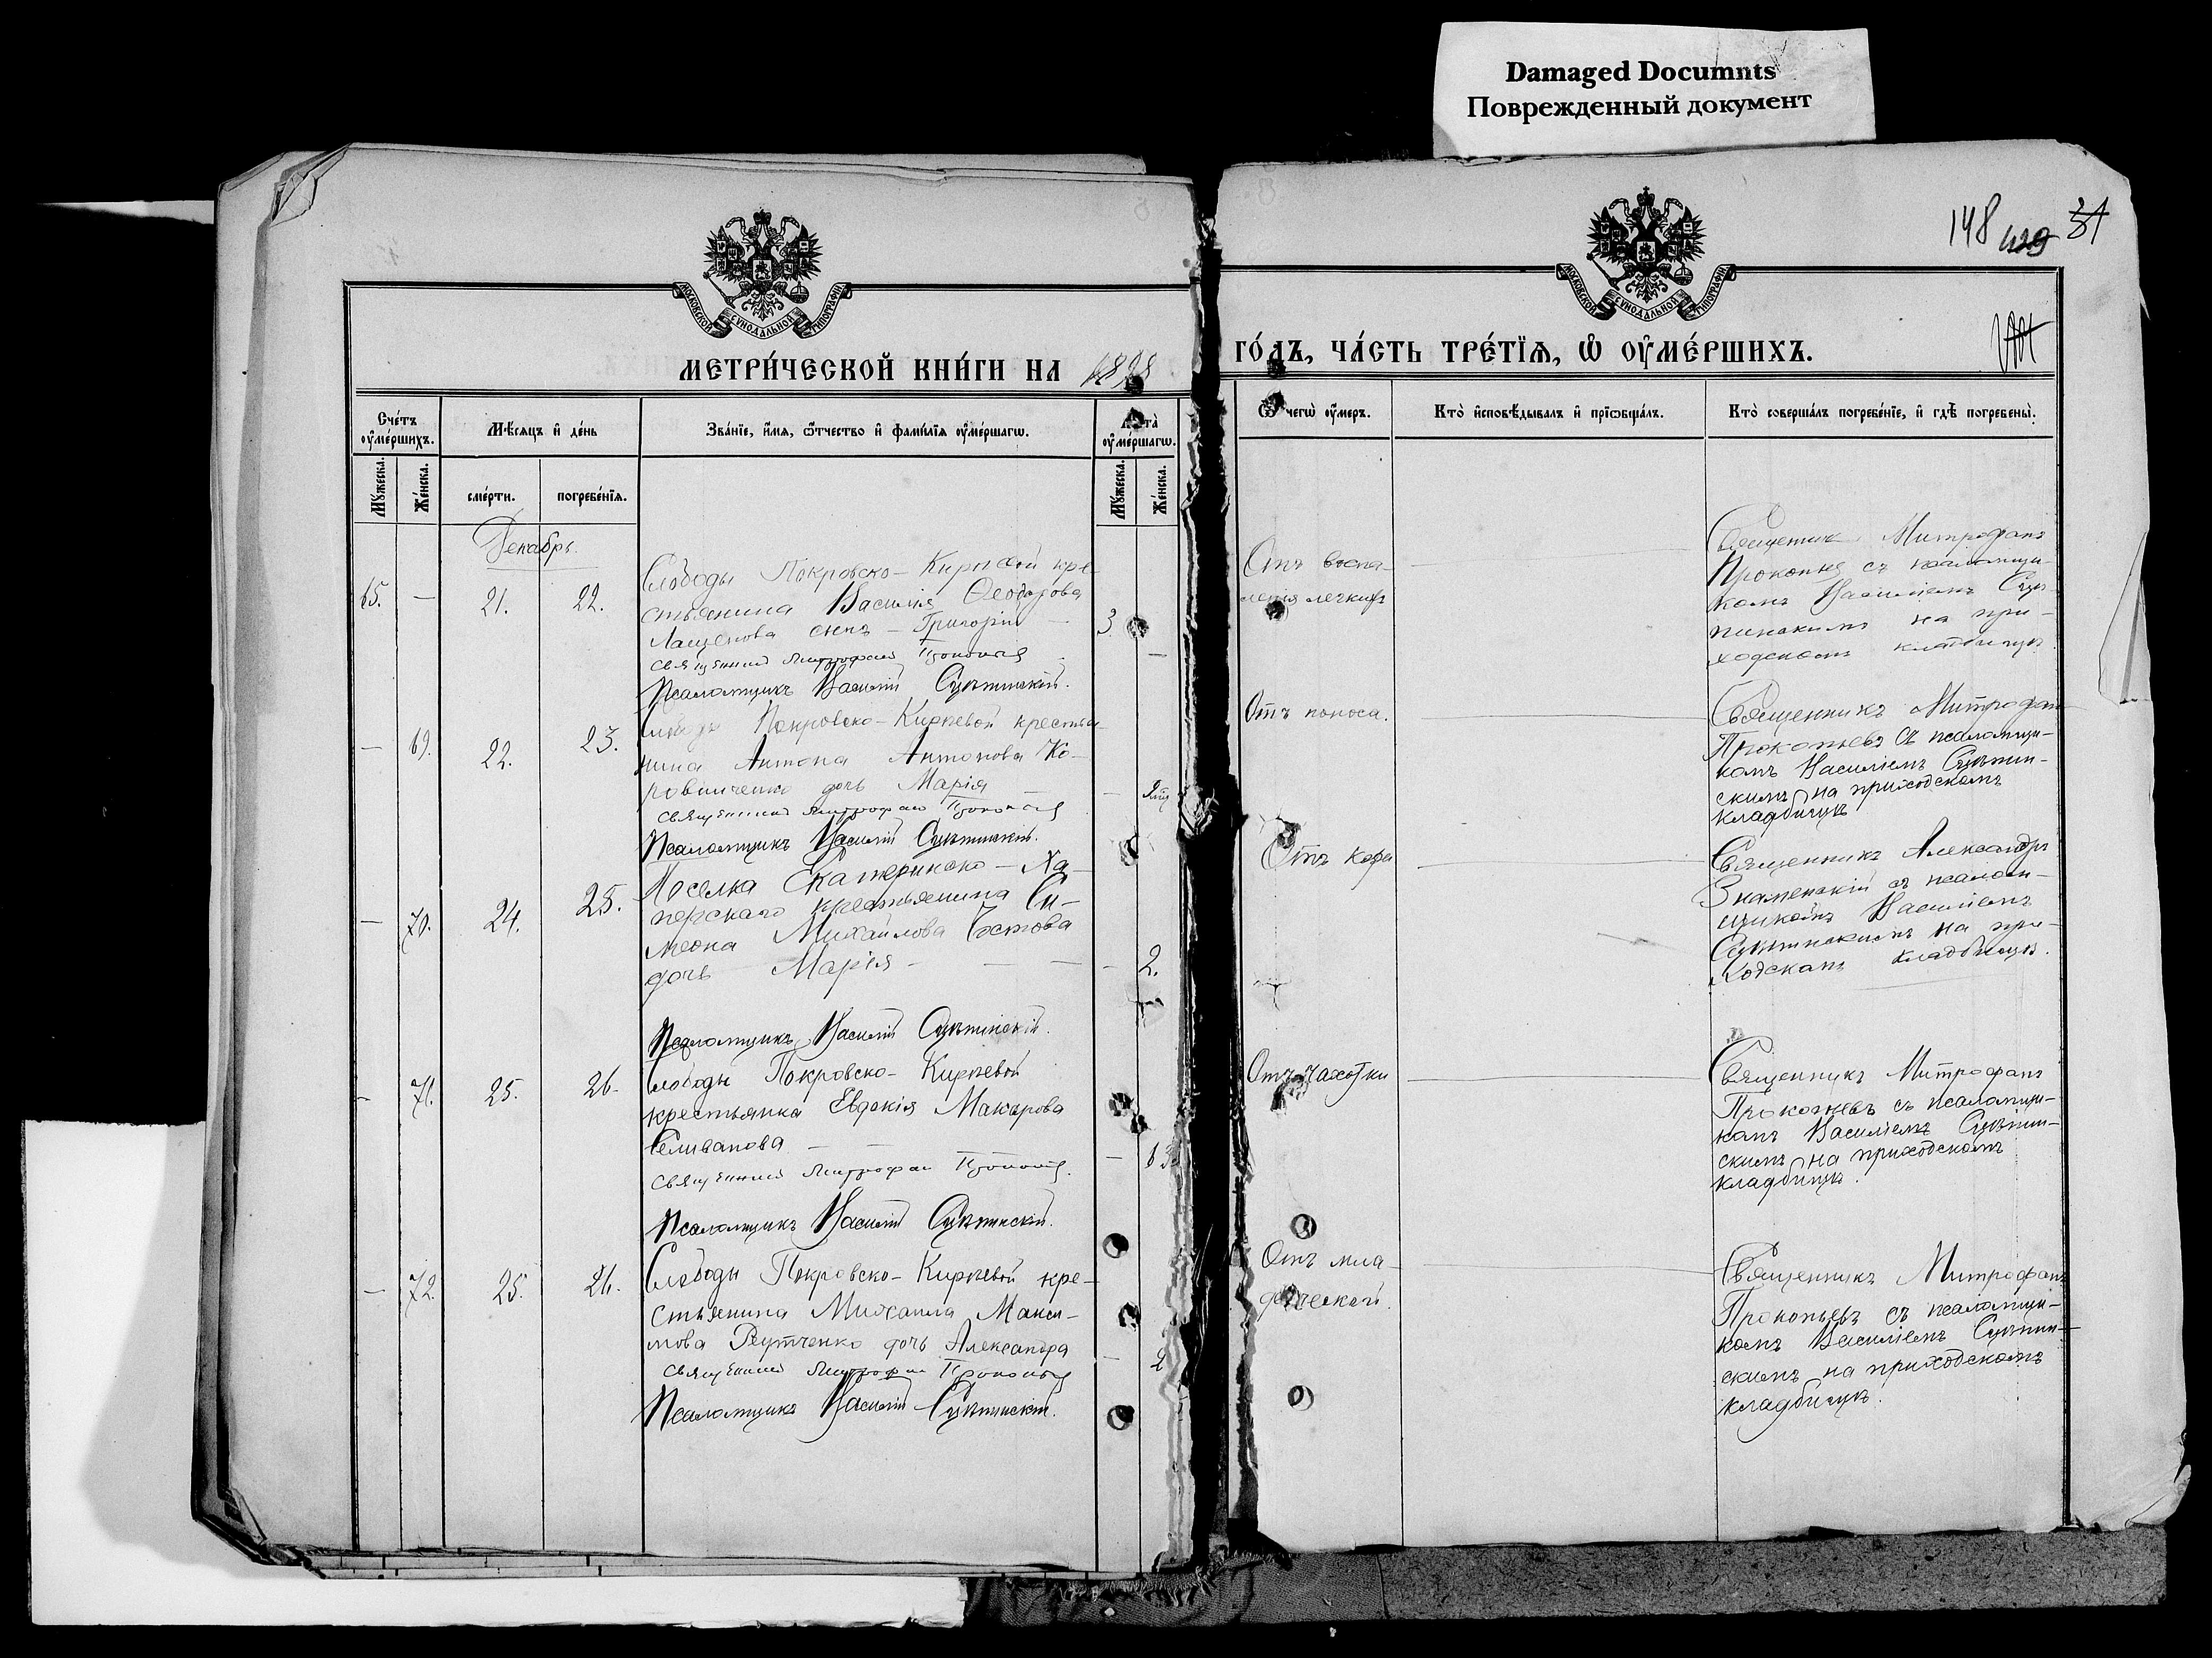 Damaged Documnts
Поврежденный документ
148 129 31
МОСКОВСКОЙ СѴНОДАЛЬНОЙ ТИПОГРАФІИ
МОСКОВСКОЙ СѴНОДАЛЬНОЙ ТИПОГРАФІИ
МЕТРИ́ЧЕСКОЙ КНИ́ГИ НА 1898 ГО́ДЪ, ЧА́СТЬ ТРЕ́ТЇѦ, Ѡ҆ ОУ҆МЕ́РШИХЪ.
Сче́тъ оу҆ме́ршихъ.
Мꙋ́жеска.
Же́нска.
Мѣ́сѧцъ и҆ де́нь
сме́рти.
погребе́нїѧ.
Зва́нїе, и҆́мѧ, ѻ҆́тчество и҆ фами́лїѧ оу҆ме́ршагѡ.
Лѣ́та̀ оу҆ме́ршагѡ.
Мꙋ́жеска.
Же́нска.
Ѿ чегѡ̀ оу҆́меръ.
Кто̀ и҆сповѣ́дывалъ и҆ прїѡбща́лъ.
Кто̀ соверша́лъ погребе́нїе, и҆ гдѣ̀ погребены̀.
Декабрь
65. — 21. 22.
Слободы Покровско-Кирпевой кре-
стьянина Василія Ѳеодорова
Лащенова сынъ — Григорій —
3 —
Священник Митрофан Прокопьев
Псаломщикъ Василій
Отъ воспа-
ленія легкихъ
Священникъ Митрофанъ
Прокопьевъ съ псаломщи-
комъ Василіемъ
на при-
ходскомъ кладбищѣ.
— 69. 22. 23.
Слободы Покровско-Кирпевой крестья-
нина Антона Антонова Ко-
ровниченко дочь Марія
Священник Митрофан Прокопьев
Псаломщикъ Василій
Отъ поноса.
Священникъ Митрофанъ
Прокопьевъ съ псаломщи-
комъ Василіемъ
скимъ на приходскомъ
кладбищѣ
— 70. 24. 25.
Поселка Екатериново-Ха-
перскаго крестьянина Си-
меона Михайлова
дочь Марія — — —
— 2.
Псаломщикъ Василій
Отъ кори
Священникъ Александръ
Знаменскій съ псалом-
щикомъ Василіемъ
на при-
ходскомъ кладбищѣ.
— 71. 25. 26.
Слободы Покровско-Кирпевой
крестьянка Евдокія Макарова
Селиванова — —
Священник Митрофан Прокопьев.
Псаломщикъ Василій
Отъ чахотки
Священникъ Митрофанъ
Прокопьевъ съ псаломщи-
комъ Василіемъ
скимъ на приходскомъ
кладбищѣ.
— 72. 25. 26.
Слободы Покровско-Кирпевой кре-
стьянина Михаила Макси-
мова Реутченко дочь Александра
— 2
Священник Митрофан Прокопьев
Псаломщикъ Василій
Отъ мла-
денческой.
Священникъ Митрофанъ
Прокопьевъ съ псаломщи-
комъ Василіемъ
скимъ на приходскомъ
кладбищѣ.